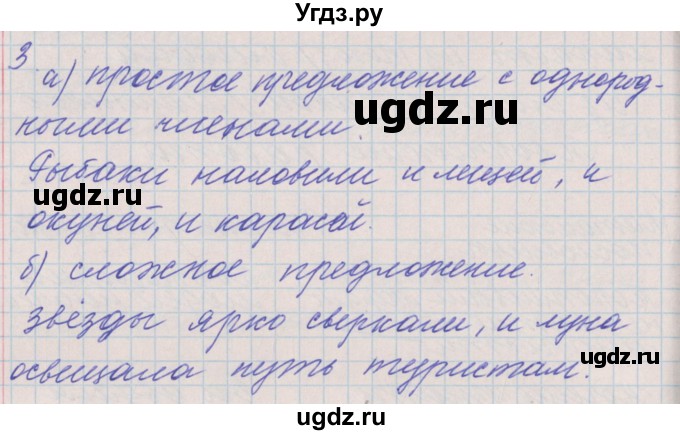 Угдз.ру
3
а) простое предложение с однород-
ugdz.ru
ными членами.
Рыбаки наловили и лещей, и
ugdz.ru
окуней, и карасей.
б) сложное предложение.
звёзды ярко сверкали, и луна
ugdz.ru
освещала путь туристам.
ugdz.ru